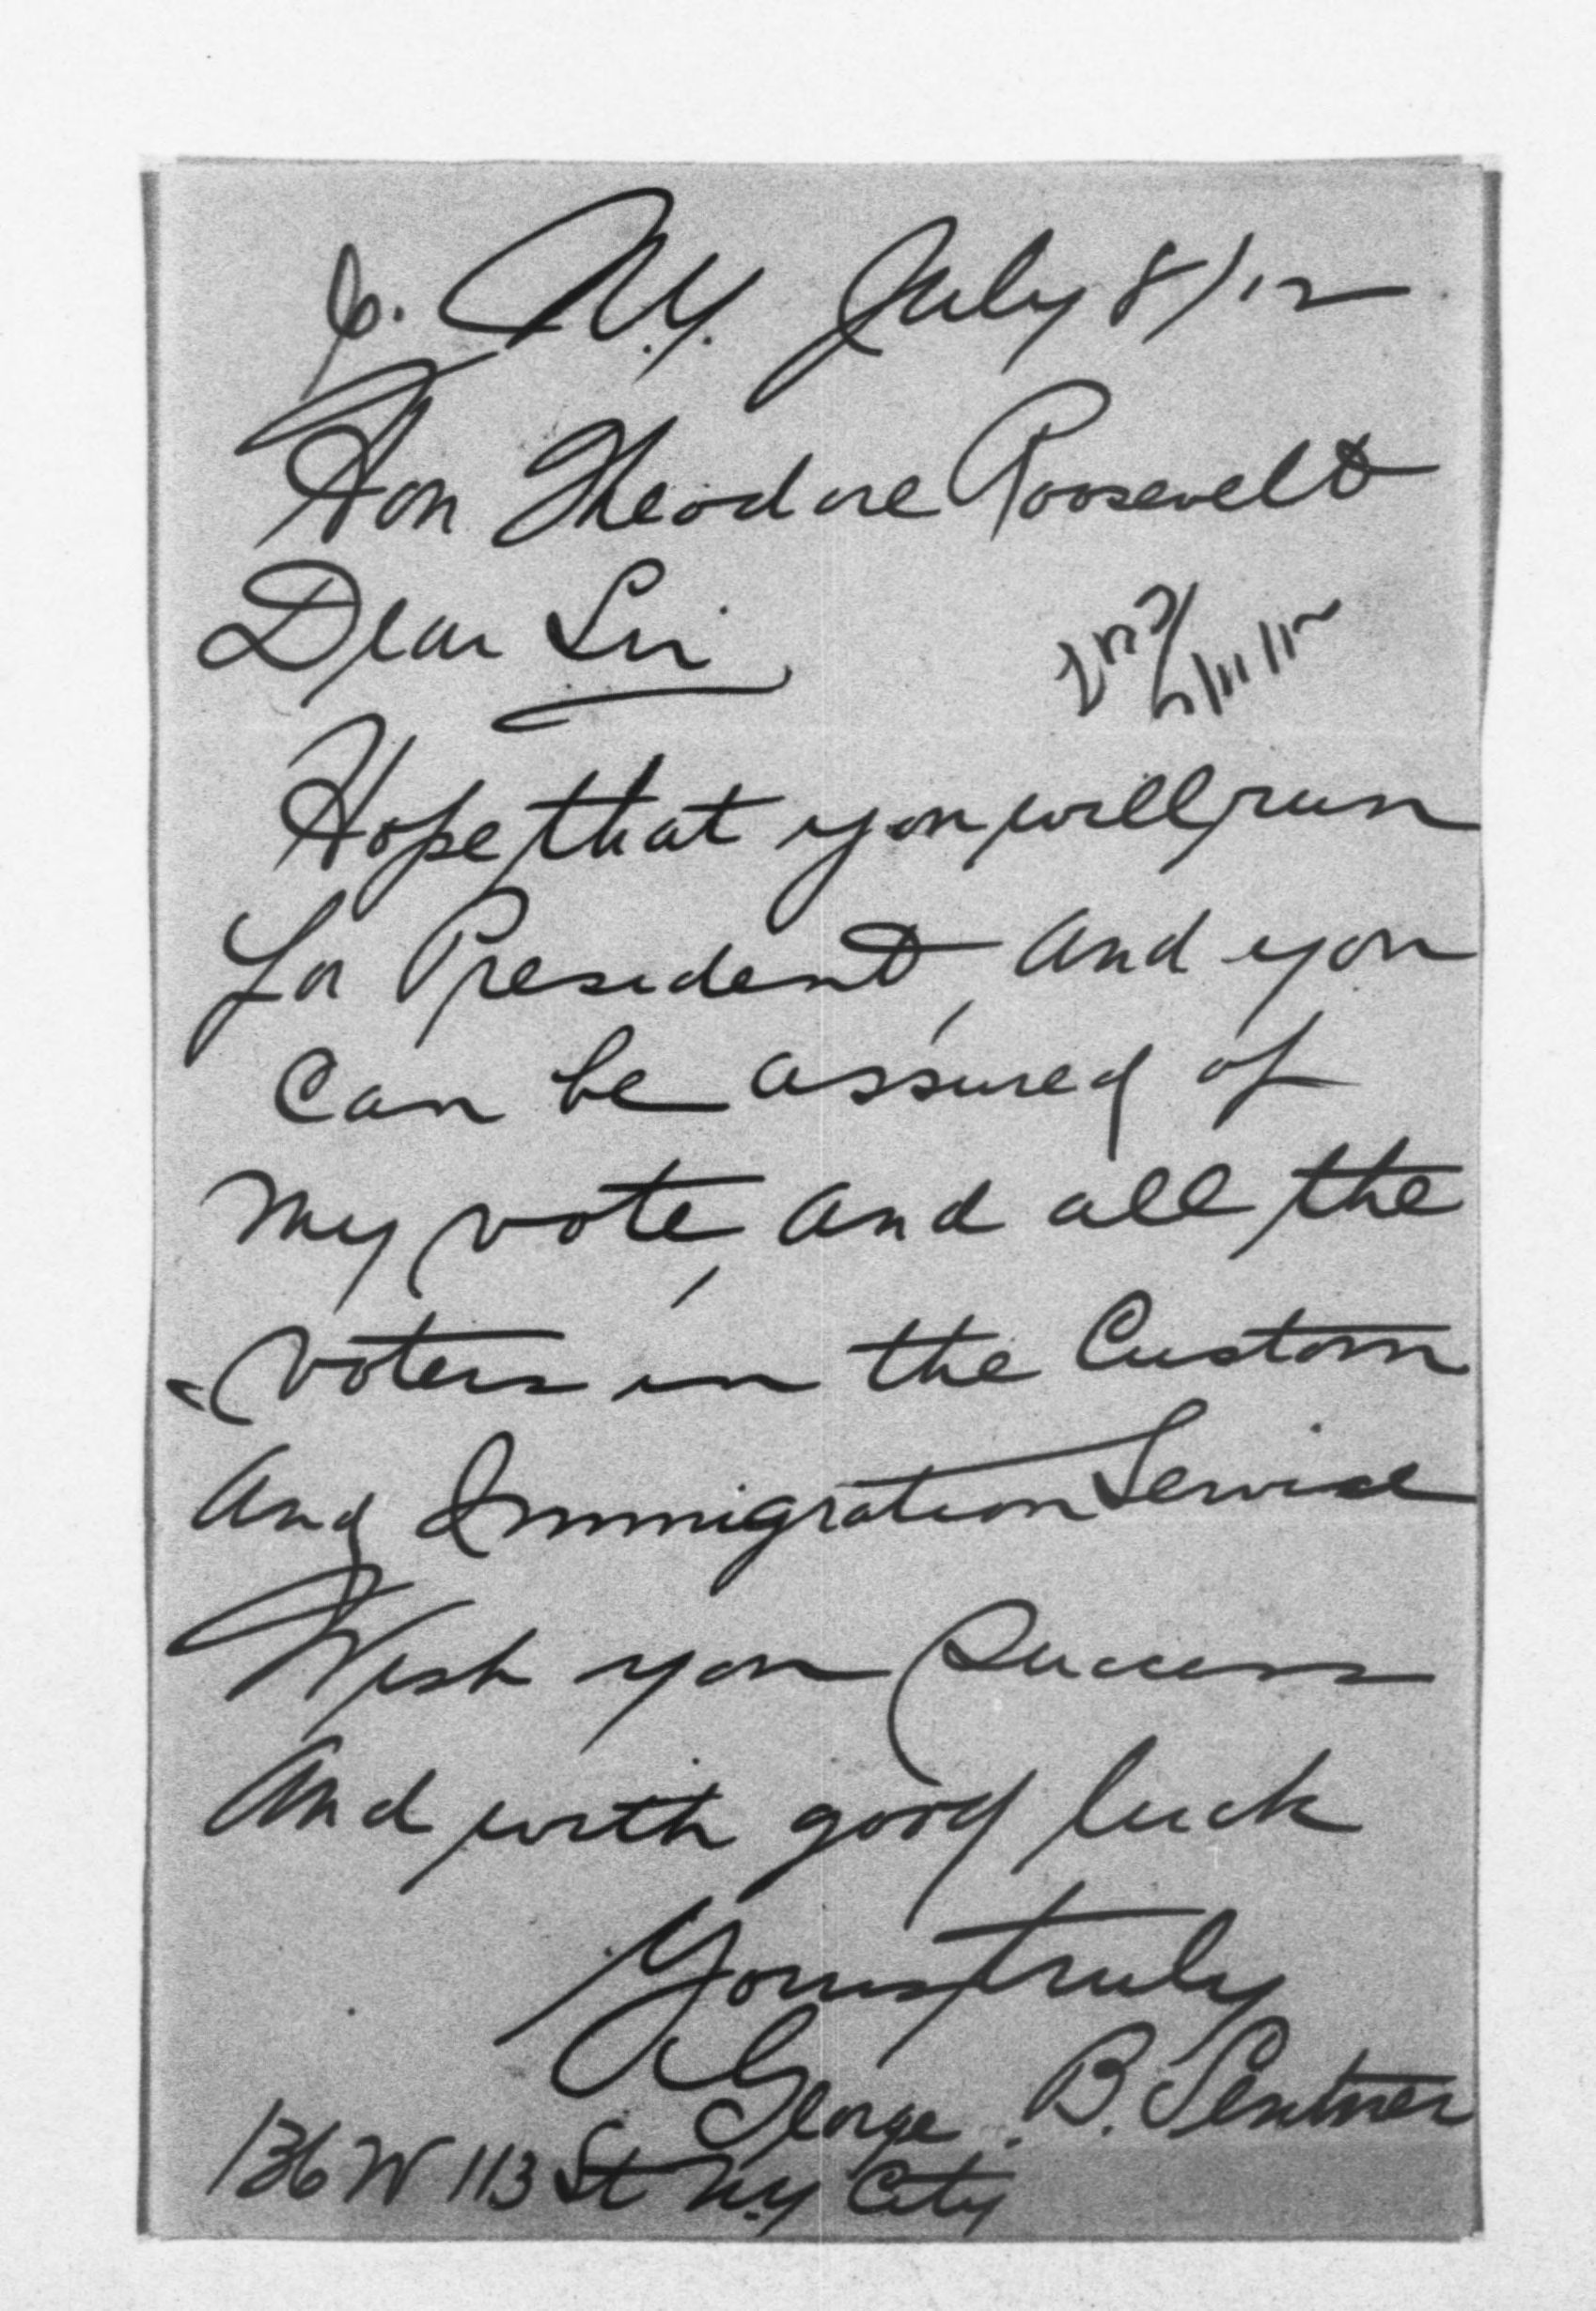 N.Y. July 8/12
Hon Theodore Roosevelt
Dear Sir
Hope that you will run
for President, and you
Can be assured of
my vote, and all the
voters in the Custom
and Immigration Service
Wish you Success
And with good luck
Yours truly
George B. Sentner
136 W 113 St N.Y City